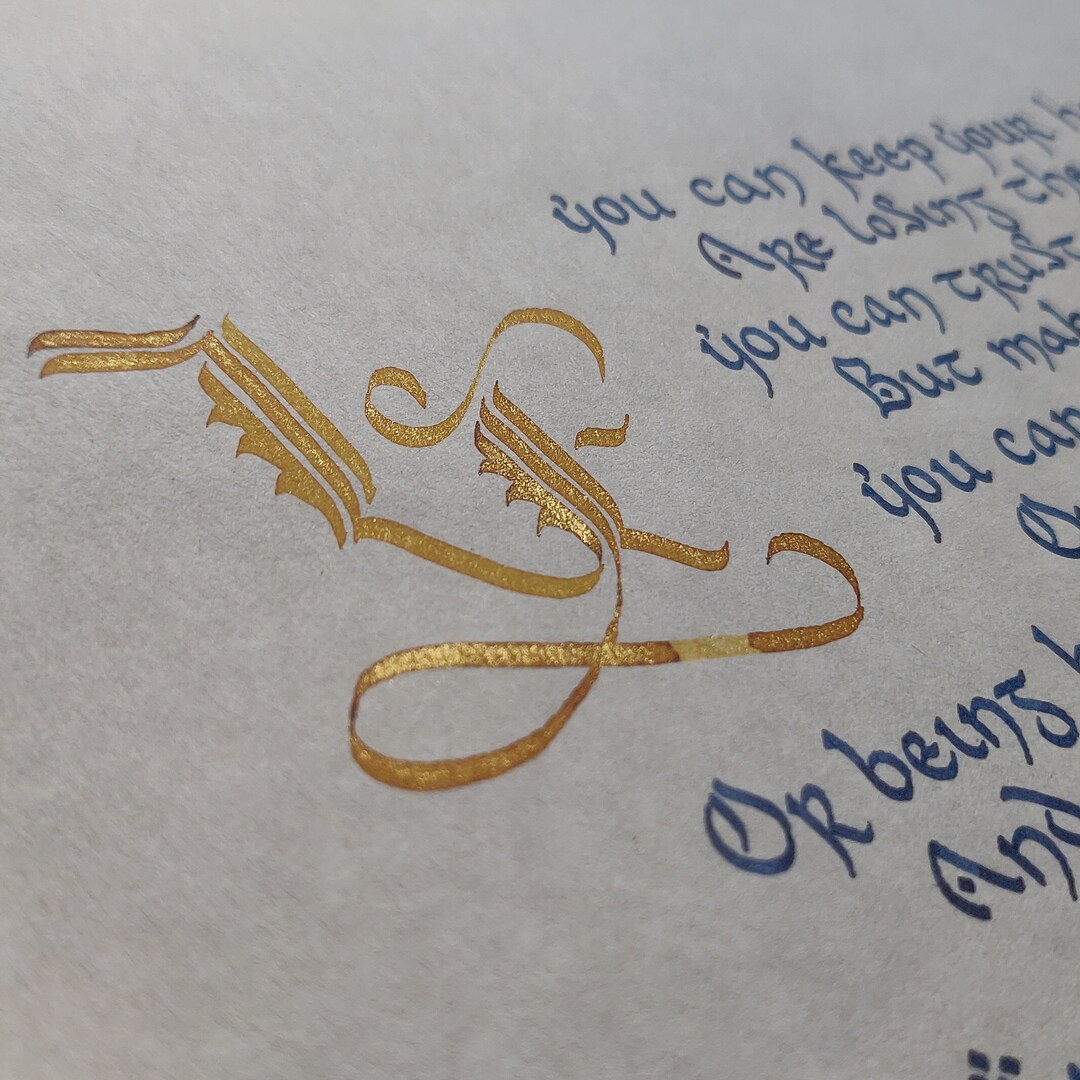 If
you can keep your
Are losing the
you can trust
But
you can
Or being
And